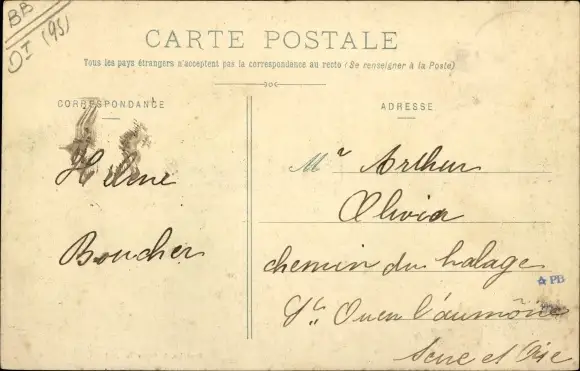 BB
OI (95)
CARTE POSTALE
Tous les pays étrangers n'acceptent pas la correspondance au recto (Se renseigner à la Poste)
CORRESPONDANCE
Helene
Boucher
ADRESSE
Mr Arthur
Olivia
chemin du halage
St Ouen l'aumône
Seine et Oise
PB